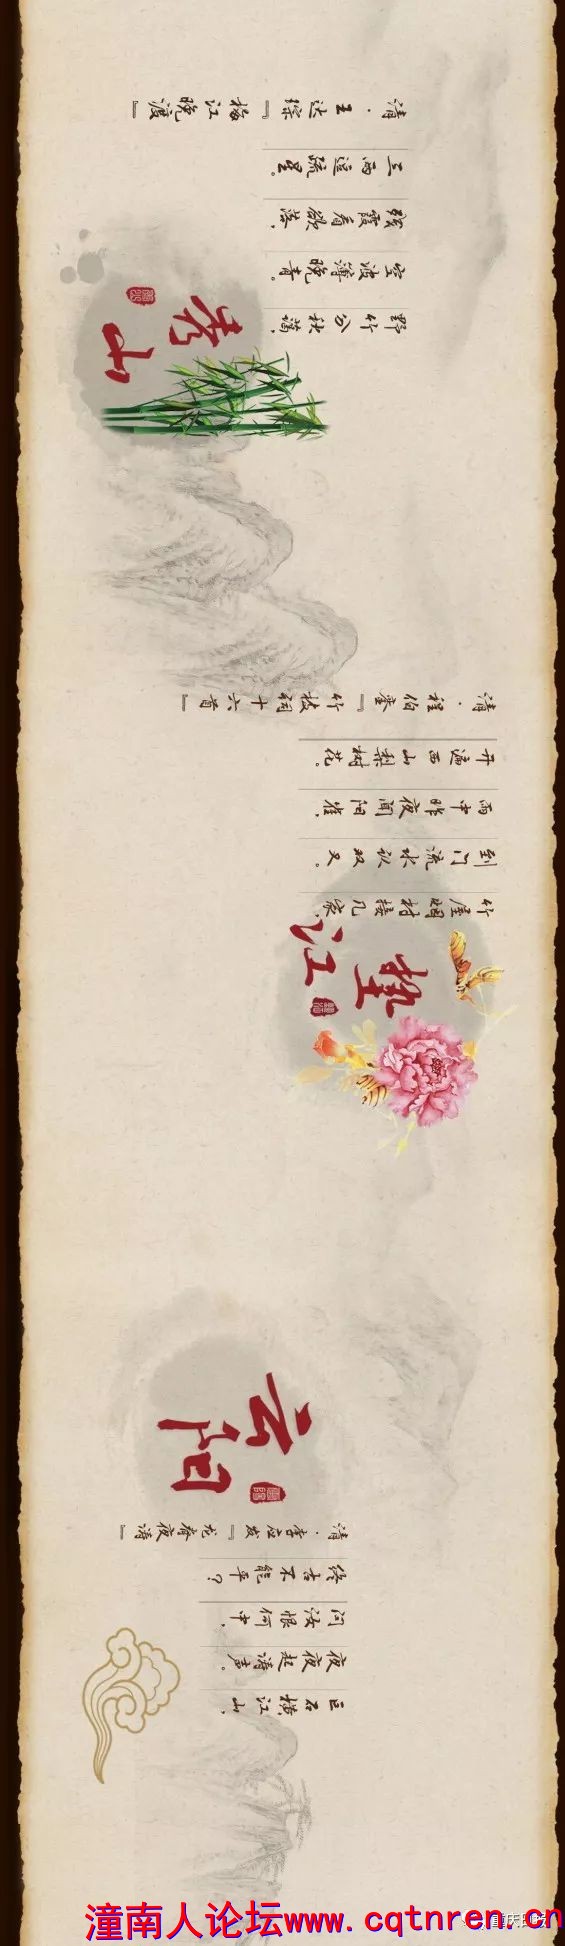 巨石横江山，
夜夜起涛声。
问汝恨何中，
终古不能平？
清·李应发『龙脊夜涛』
云阳
垫江
竹屋烟村接几家，
到门流水认双叉。
雨中昨夜闻阳雀，
开遍西山梨树花。
清·程伯銮『竹枝词十六首』
秀山
野竹分秋蔼，
空波薄晚青。
残霞看欲落，
三两逗疏星。
清·王达琮『梅江晚渡』
潼南人论坛www.cqtnren.cn